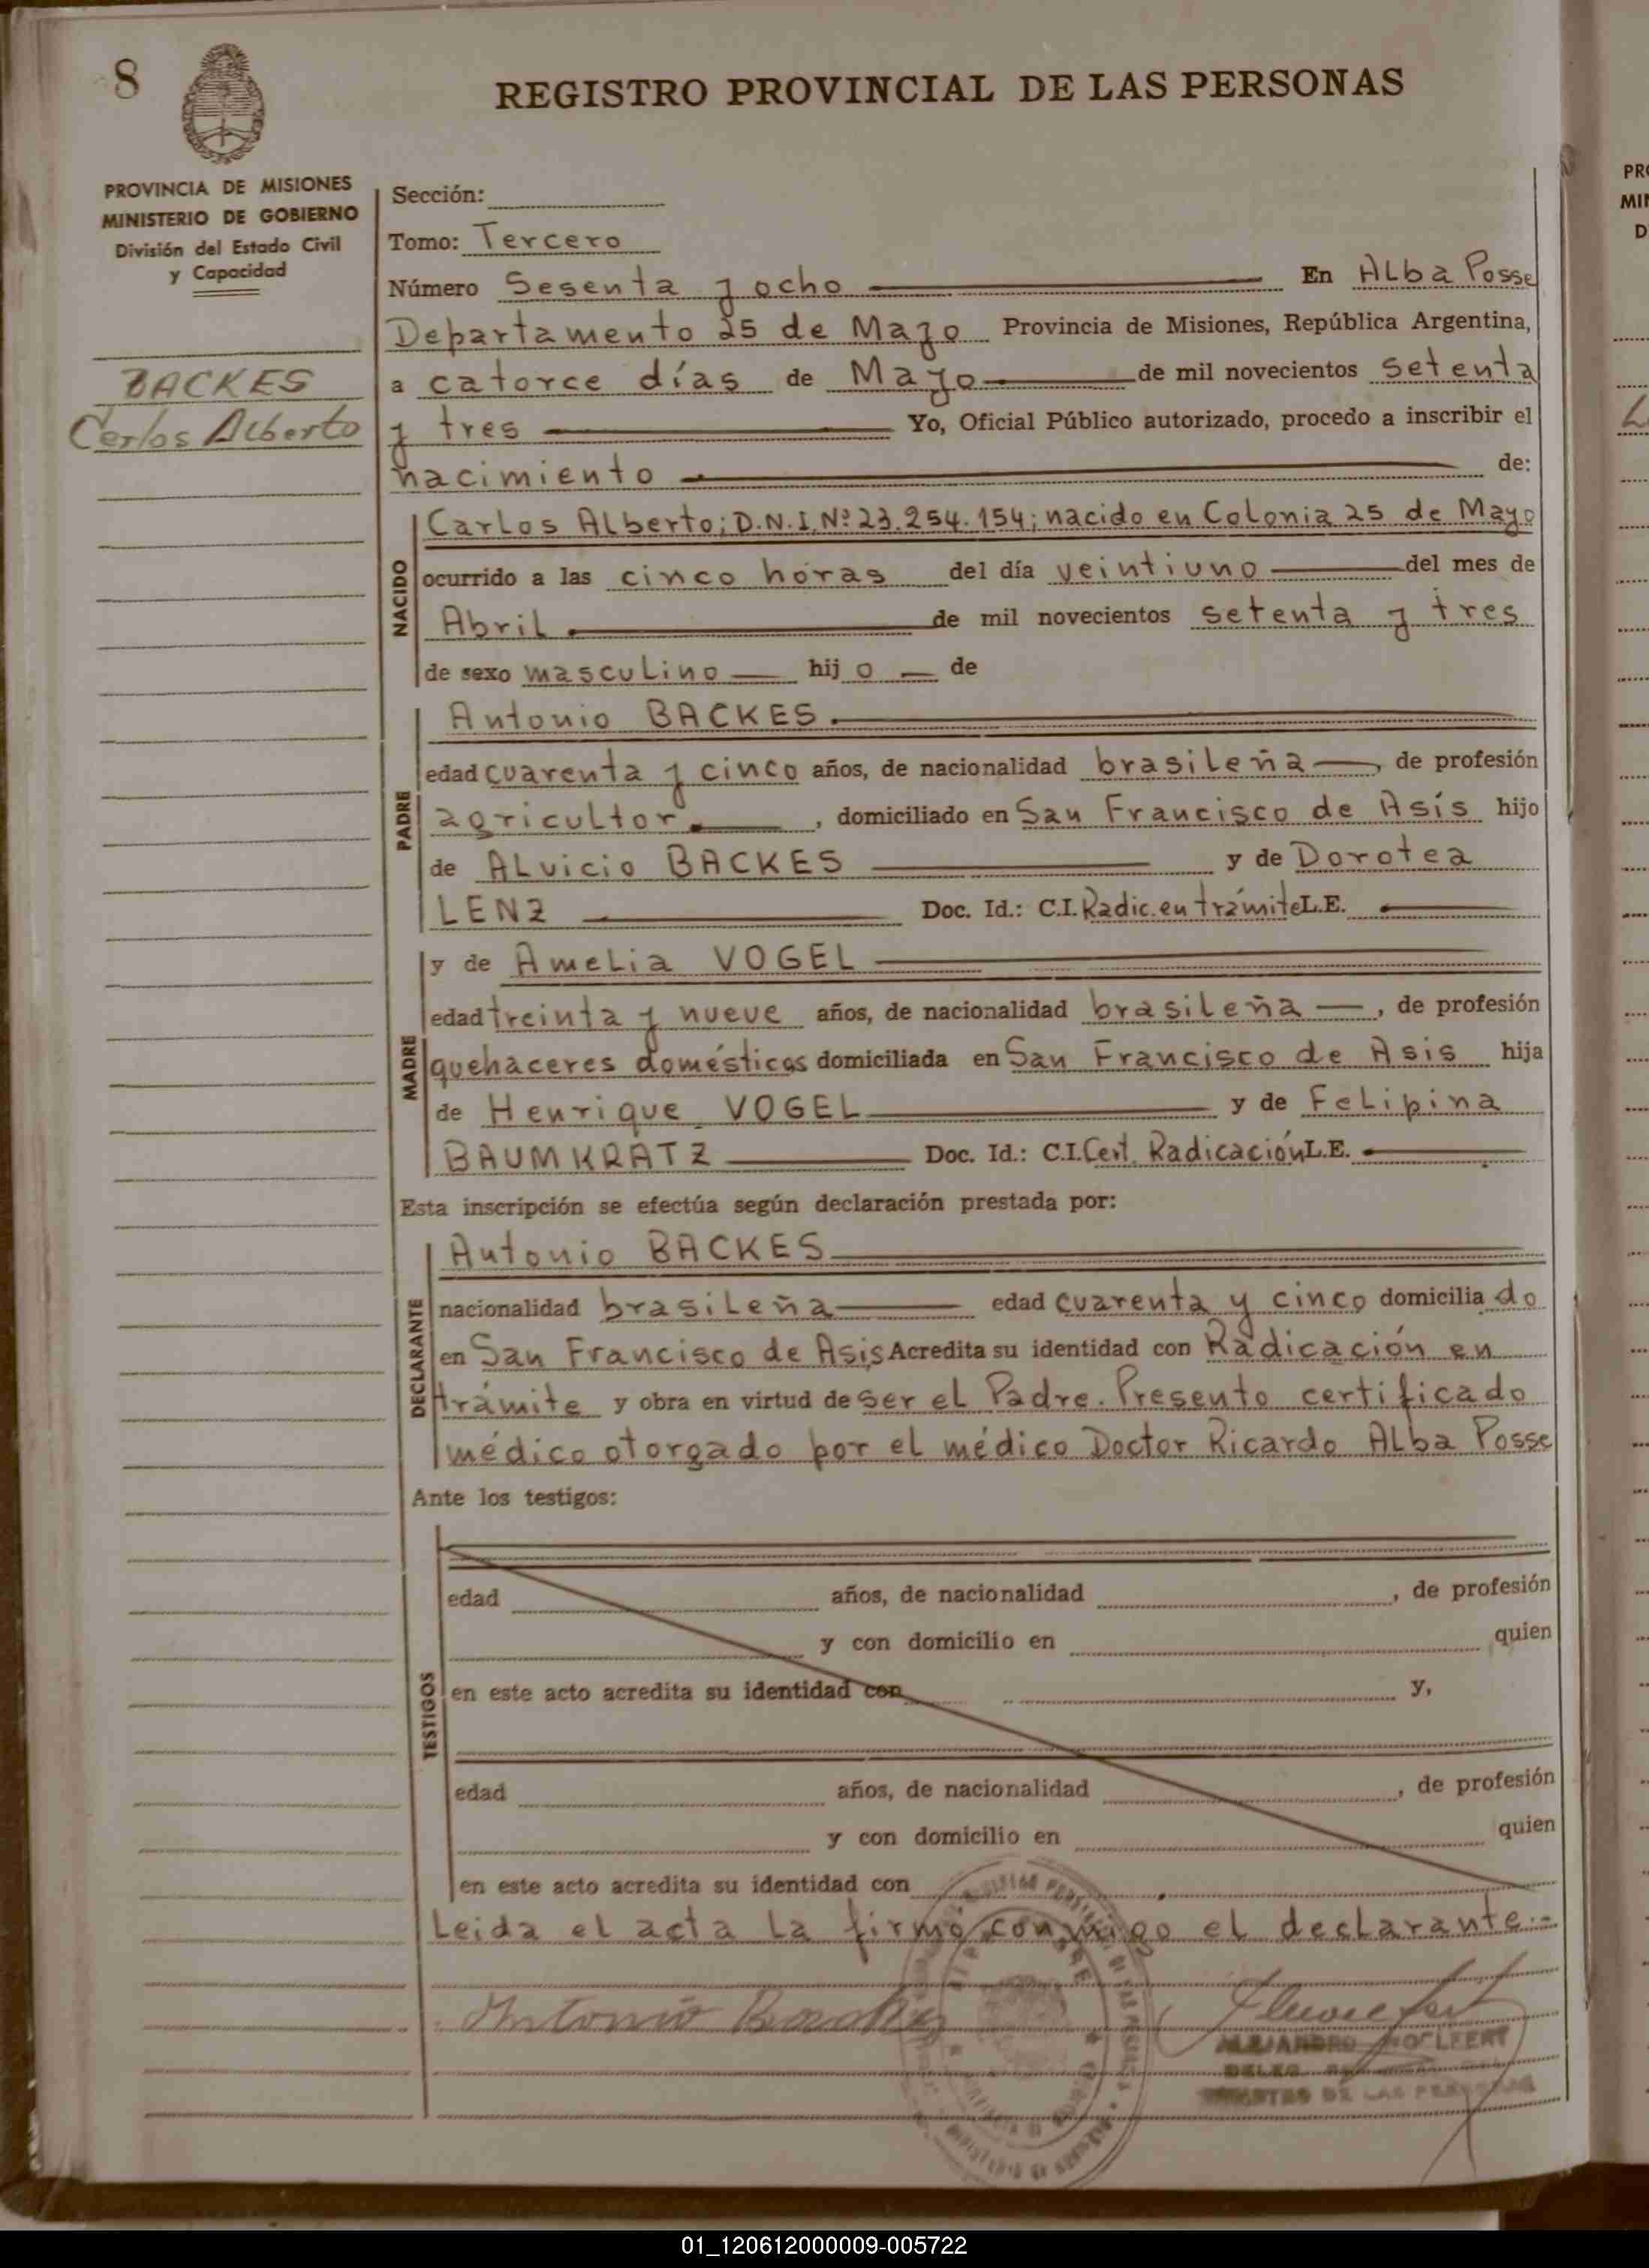 8
REGISTRO PROVINCIAL DE LAS PERSONAS
PROVINCIA DE MISIONES
MINISTERIO DE GOBIERNO
División del Estado Civil
y Capacidad
BACKES
Carlos Alberto
Sección:
Tomo: Tercero
Número Sesenta y ocho En Alba Posse
Departamento 25 de Mayo Provincia de Misiones, República Argentina,
a catorce días de Mayo de mil novecientos setenta
y tres Yo, Oficial Público autorizado, procedo a inscribir el
nacimiento de:
NACIDO
Carlos Alberto; D.N.I. Nº 23.254.154; nacido en Colonia 25 de Mayo
ocurrido a las cinco horas del día veintiuno del mes de
Abril de mil novecientos setenta y tres
de sexo masculino hijo de
PADRE
Antonio BACKES
edad cuarenta y cinco años, de nacionalidad brasileña, de profesión
agricultor, domiciliado en San Francisco de Asís hijo
de Alvicio BACKES y de Dorotea
LENZ Doc. Id.: C.I. Radic. en trámite L.E.
MADRE
y de Amelia VOGEL
edad treinta y nueve años, de nacionalidad brasileña, de profesión
quehaceres domésticos domiciliada en San Francisco de Asis hija
de Henrique VOGEL y de Felipina
BAUMKRATZ Doc. Id.: C.I. Cert. Radicación L.E.
Esta inscripción se efectúa según declaración prestada por:
DECLARANTE
Antonio BACKES
nacionalidad brasileña edad cuarenta y cinco domiciliado
en San Francisco de Asis Acredita su identidad con Radicación en
trámite y obra en virtud de ser el Padre. Presento certificado
médico otorgado por el médico Doctor Ricardo Alba Posse
Ante los testigos:
TESTIGOS
edad años, de nacionalidad , de profesión
y con domicilio en quien
en este acto acredita su identidad con y,
edad años, de nacionalidad , de profesión
y con domicilio en quien
en este acto acredita su identidad con
Leida el acta la firmó conmigo el declarante.-
Antonio Backes
ALEJANDRO
DE LAS PERSONAS
01_120612000009-005722